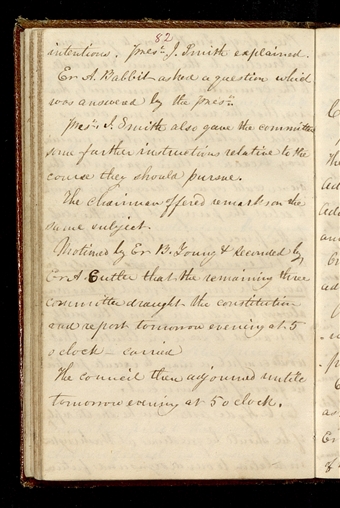 82
intentions. Prest. J. Smith explained.
Er A. Babbit asked a question which
was answered by the Prest.
Prest. J. Smith also gave the committee
some further instructions relative to the
course they should pursue.
The chairman offered remarks on the
same subject.
Motioned by Er B. Young & seconded by
Er A Cutler that the remaining three
committee draught the constitution
and report tomorrow evening at 5
o clock — carried
The council then adjourned untill
tomorrow evening at 5 o clock.